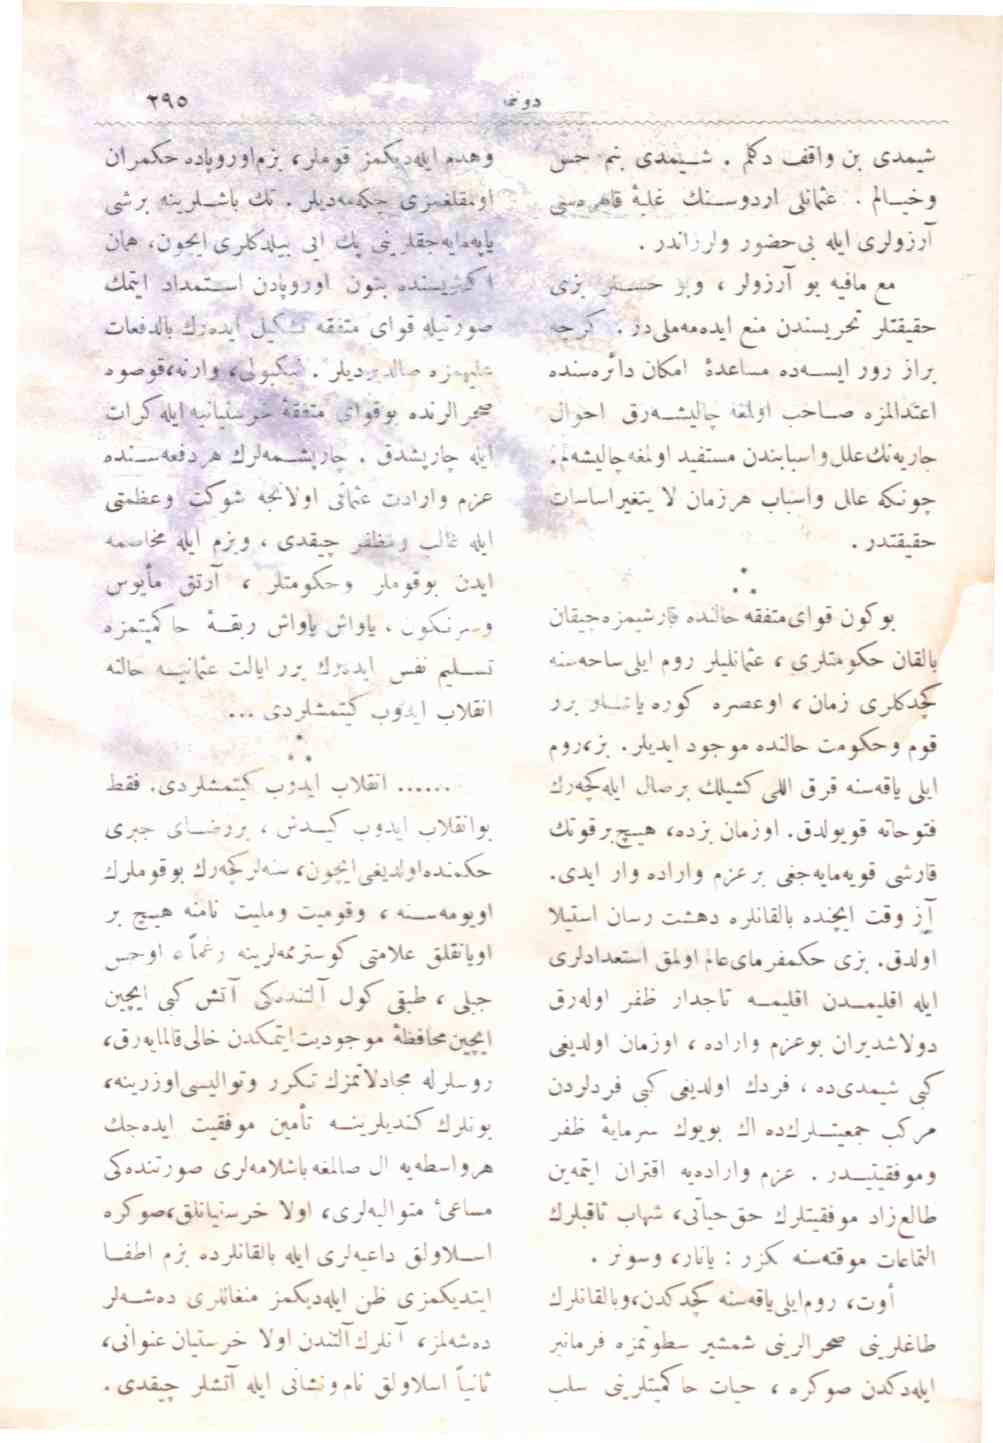 دونما
٢٩٥
شیمدی بن واقف دكلم . شـیمدی بنم حس
وخیـالم . عثمانلی اردوسـنك غلبهٔ قاهره‌سنی
آرزولری ایله بی‌حضور ولرزاندر .
مع مافیه بو آرزولر ، وبو حسـلر بزی
حقیقتلر تحریسندن منع ایده‌مه‌ملی‌در . كرچه
براز زور ایسـه‌ده مساعدهٔ امكان دائره‌سنده
اعتدالمزه صـاحب اولمغه چالیشـه‌رق احوال
جاریه‌نك علل واسبابندن مستفید اولمغه چالیشه‌لم.
چونكه علل واسباب هرزمان لا یتغیر اساسات
حقیقتدر .
بوكون قوای متفقه حالنده قارشیمزه چیقان
بالقان حكومتلری ، عثمانلیلر روم ایلی ساحه‌سنه
كچدكلری زمان ، اوعصره كوره برر
قوم وحكومت حالنده موجود ایدیلر. بز،روم
ایلی یاقه‌سنه قرق اللی كشیلك برصال ایله كچه‌رك
فتوحاته قویولدق. اوزمان بزده، هیـچ برقوتك
قارشی قویه‌مایه‌جغی برعزم واراده وار ایدی.
آز وقت ایچنده بالقانلره دهشت رسان استیلا
اولدق. بزی حكمفرمای عالم اولمق استعدادلری
ایله اقلیمـدن اقلیمـه تاجدار ظفر اوله‌رق
دولاشدیران بوعزم واراده ، اوزمان اولدیغی
كبی شیمدی‌ده ، فردك اولدیغی كبی فردلردن
مركب جمعیتـلرك‌ده اك بویوك سرمایهٔ ظفر
وموفقیتیـدر . عزم واراده‌یه اقتران ایتمه‌ین
طالع‌زاد موفقیتلرك حق حیاتی، شهاب ثاقبلرك
التماعات موقته‌سنه بكزر : یانار، وسونر .
أوت، روم‌ایلی یاقه‌سنه كچدكدن،وبالقانلرك
طاغلرینی صحرالرینی شمشیر سطوتمزه فرمانبر
ایله‌دكدن صوكره ، حیات حاكمیتلرینی سلب
وهدم ایله‌دیكمز قوملر، بزم اوروپاده حكمران
اولمقلغمزی چكه‌مه‌دیلر . تك باشـلرینه برشی
یاپه‌مایه‌جقلرینی پك ایی بیلدكلری ایچون، همان
اكثریسنده بتون اوروپادن اسـتمداد ایتمك
صورتیله قوای متفقه تشكیل ایده‌رك بالدفعات
علیهمزه صالدیردیلر . نیكبولی، وارنه،قوصوه
صحرالرنده بوقوای متفقهٔ خرستیانیه ایله كرات
ایله چارپشدق . چارپشـمه‌لرك هردفعه‌سـنده
عزم وارادت عثمانی اولانجه شوكت وعظمتی
ایله غالب ومظفر چیقدی ، وبزم ایله مخاصمه
ایدن بوقوملر وحكومتلر ، آرتق مأیوس
وسرنكون . یاواش یاواش ربقـهٔ حاكمیتمزه
تسـلیم نفس ایده‌رك برر ایالت عثمانیـه حالنه
انقلاب ایدوب كیتمشلردی ...
....... انقلاب ایدوب كیتمشلردی. فقط
بوانقلاب ایدوب كیـدش ، بررضـای جبری
حكمنده اولدیغی ایچون، سنه‌لر كچه‌رك بوقوملرك
اویومه‌سـنه ، وقومیت وملیت نامنه هیـچ بر
اویانقلق علامتی كوسترممه‌لرینه رغماً، اوحس
جبلی ، طبقی كول آلتنده‌كی آتش كبی ایچین
ایچین محافظهٔ موجودیت ایتمكدن خالی قالمایه‌رق،
روسلرله مجادلاتمزك تكرر وتوالیسی اوزرینه،
بونلرك كندیلرینـه تأمین موفقیت ایده‌جك
هرواسطه‌یه ال صالمغه باشلامه‌لری صورتنده‌كی
مساعیٔ متوالیه‌لری، اولا خرستیانلق،صوكره
اسـلاولق داعیه‌لری ایله بالقانلرده بزم اطفـا
ایتدیكمزی ظن ایله‌دیكمز منغاللری ده‌شـه‌لر
ده‌شه‌لمز، آنلرك آلتندن اولا خرستیان عنوانی،
ثانیاً اسلاولق نام ونشانی ایله آتشلر چیقدی .